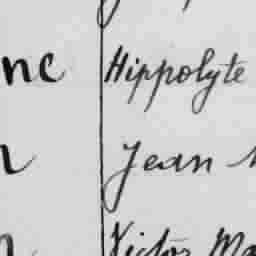 nc Hippolyte
Jean
Victor Ma